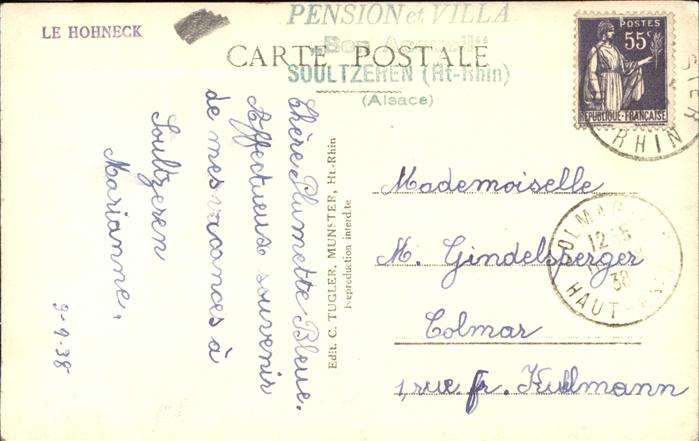 LE HOHNECK
PENSION et VILLA
„Bon Accueil“
CARTE POSTALE
SOULTZEREN (Ht-Rhin)
(Alsace)
POSTES
55c
REPUBLIQUE-FRANÇAISE
RHIN
Chère Plumette-Bleue.
Affectueux souvenir
de mes vacances à
Soultzeren
Marianne.
9-9-38
Edit. C. TUGLER, MUNSTER, Ht.-Rhin
Reproduction interdite
COLMAR
12
38
HAUT-RHIN
Mademoiselle
M. Gindelsperger
Colmar
1, rue fr. Kuhlmann